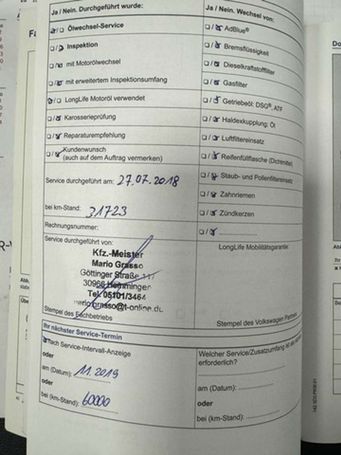 Ja / Nein. Durchgeführt wurde:
Ölwechsel-Service
Inspektion
mit Motorölwechsel
mit erweitertem Inspektionsumfang
LongLife Motoröl verwendet
Karosserieprüfung
Reparaturempfehlung
Kundenwunsch
(auch auf dem Auftrag vermerken)
Service durchgeführt am: 27.07.2018
bei km-Stand: 31723
Rechnungsnummer:
Service durchgeführt von:
Kfz.-Meister
Mario Grasso
Göttinger Straße
30966 Hemmingen
Tel. 05101/3464
mario.grasso@t-online.de
Stempel des Fachbetriebs
Ihr nächster Service-Termin
Nach Service-Intervall-Anzeige
oder
am (Datum): 11.2019
oder
bei (km-Stand): 60000
Ja / Nein. Wechsel von:
AdBlue®
Bremsflüssigkeit
Dieselkraftstofffilter
Gasfilter
Getriebeöl: DSG®, ATF
Haldexkupplung: Öl
Luftfiltereinsatz
Reifenfüllflasche (Dichtmittel)
Staub- und Pollenfiltereinsatz
Zahnriemen
Zündkerzen
LongLife Mobilitätsgarantie:
Stempel des Volkswagen Partners
Welcher Service/Zusatzumfang ist
erforderlich?
am (Datum):
oder
bei (km-Stand):